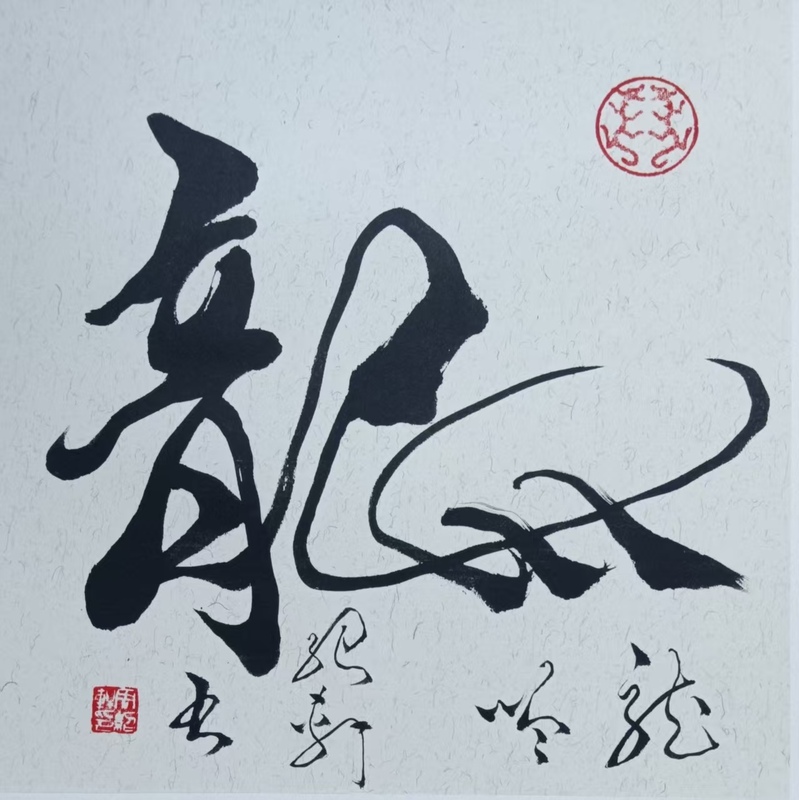 龍
龍吟
紀軒
書
周紀軒印